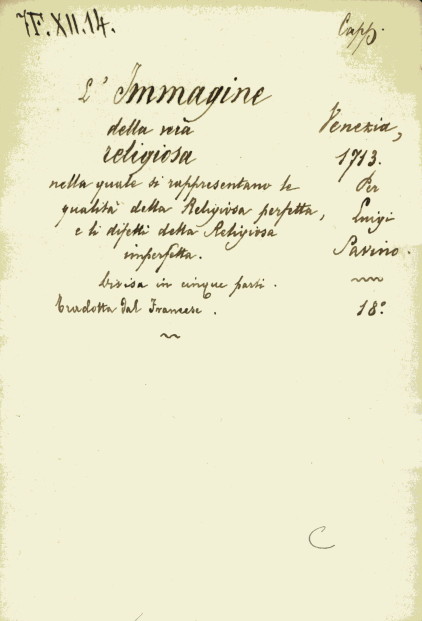 7F.XII.14.
Capp.
L' Immagine
della vera
religiosa
nella quale si rappresentano le
qualità della Religiosa perfetta,
e li difetti della Religiosa
imperfetta.
Divisa in cinque parti.
Tradotta dal Francese.
Venezia,
1713.
Per
Luigi
Pavino.
18°
C